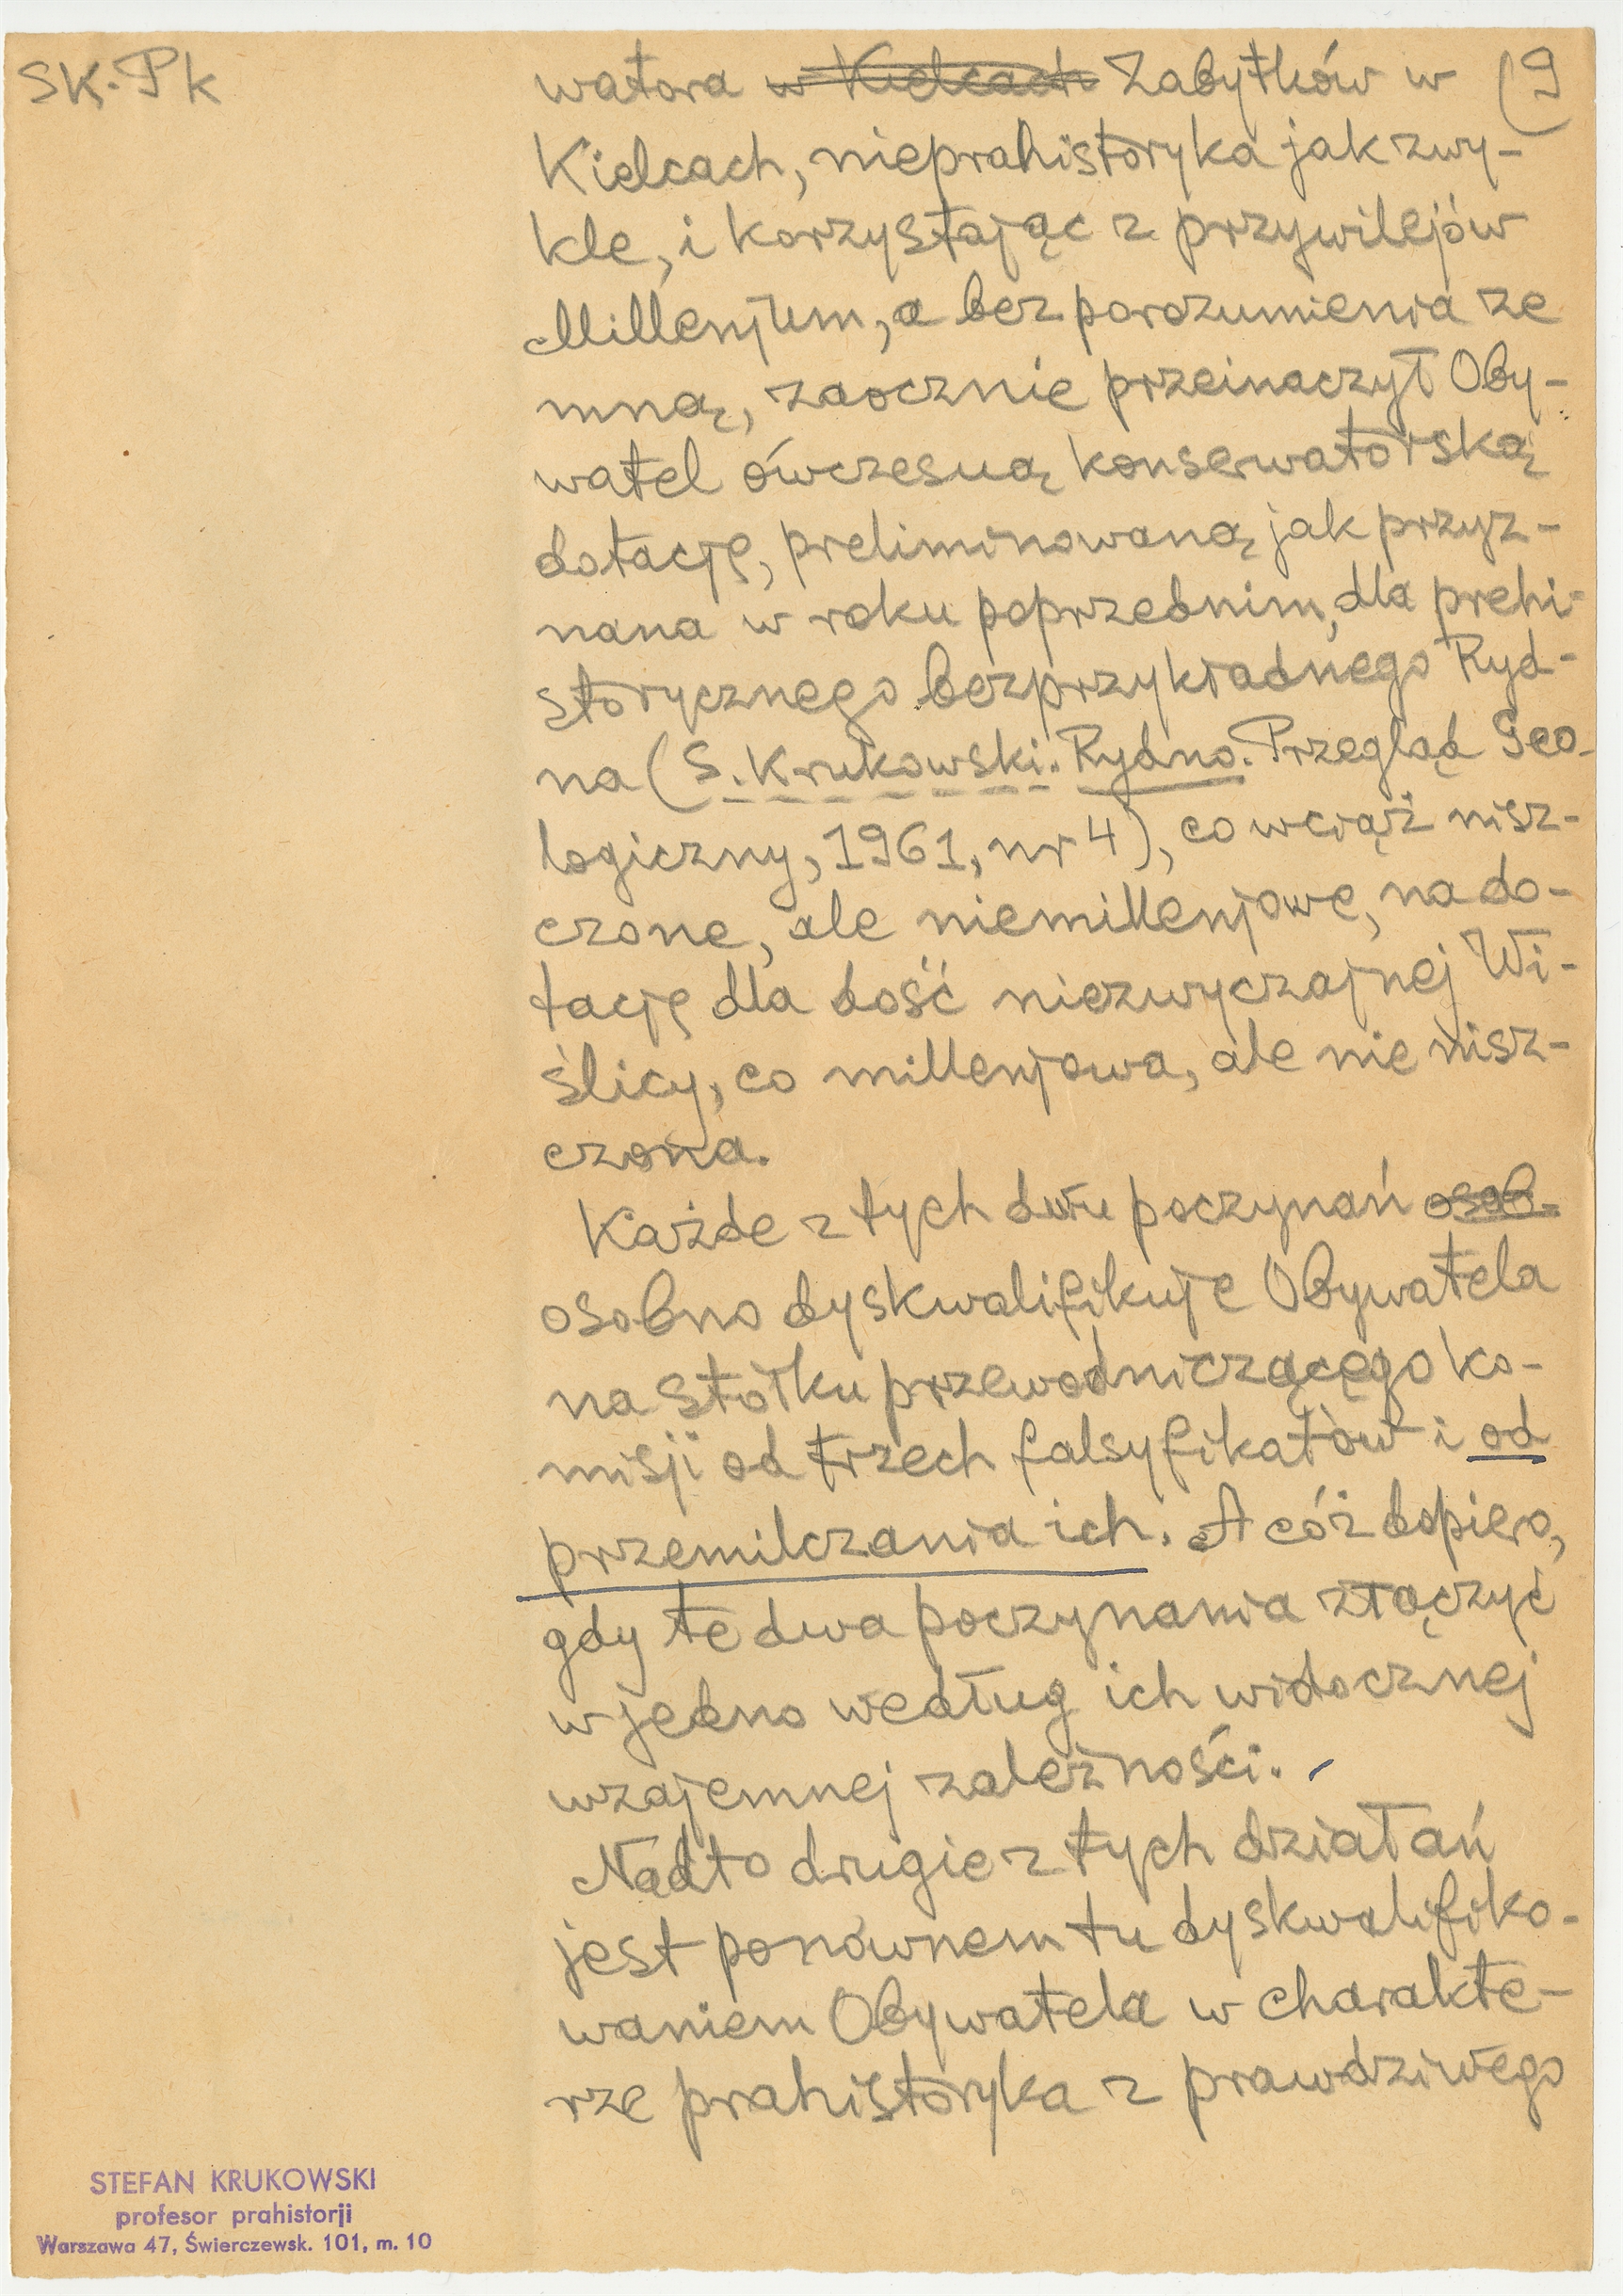 SK. Pk
(9
watora w Kielcach Zabytków w
Kielcach, nieprahistoryka jak zwy-
kle, i korzystając z przywilejów
Millenjum, a bez porozumienia ze
mną, zaocznie przeinaczył Oby-
watel ówczesną konserwatorską
dotację, preliminowaną jak przyz-
nana w roku poprzednim, dla prehi-
storycznego bezprzykładnego Ryd-
na (S. Krukowski. Rydno. Przegląd Geo-
logiczny, 1961, nr 4), co wciąż nisz-
czone, ale niemillenjowe, na do-
tację dla dość niezwyczajnej Wi-
ślicy, co millenjowa, ale nie nisz-
czona.
Każde z tych dwu poczynań osob-
osobno dyskwalifikuje Obywatela
na stołku przewodniczącego ko-
misji od trzech falsyfikatów i od
przemilczania ich. A cóż dopiero,
gdy te dwa poczynania złączyć
w jedno według ich widocznej
wzajemnej zależności.
Nadto drugie z tych działań
jest ponównem tu dyskwalifiko-
waniem Obywatela w charakte-
rze prahistoryka z prawdziwego
STEFAN KRUKOWSKI
profesor prahistorji
Warszawa 47, Świerczewsk. 101, m. 10